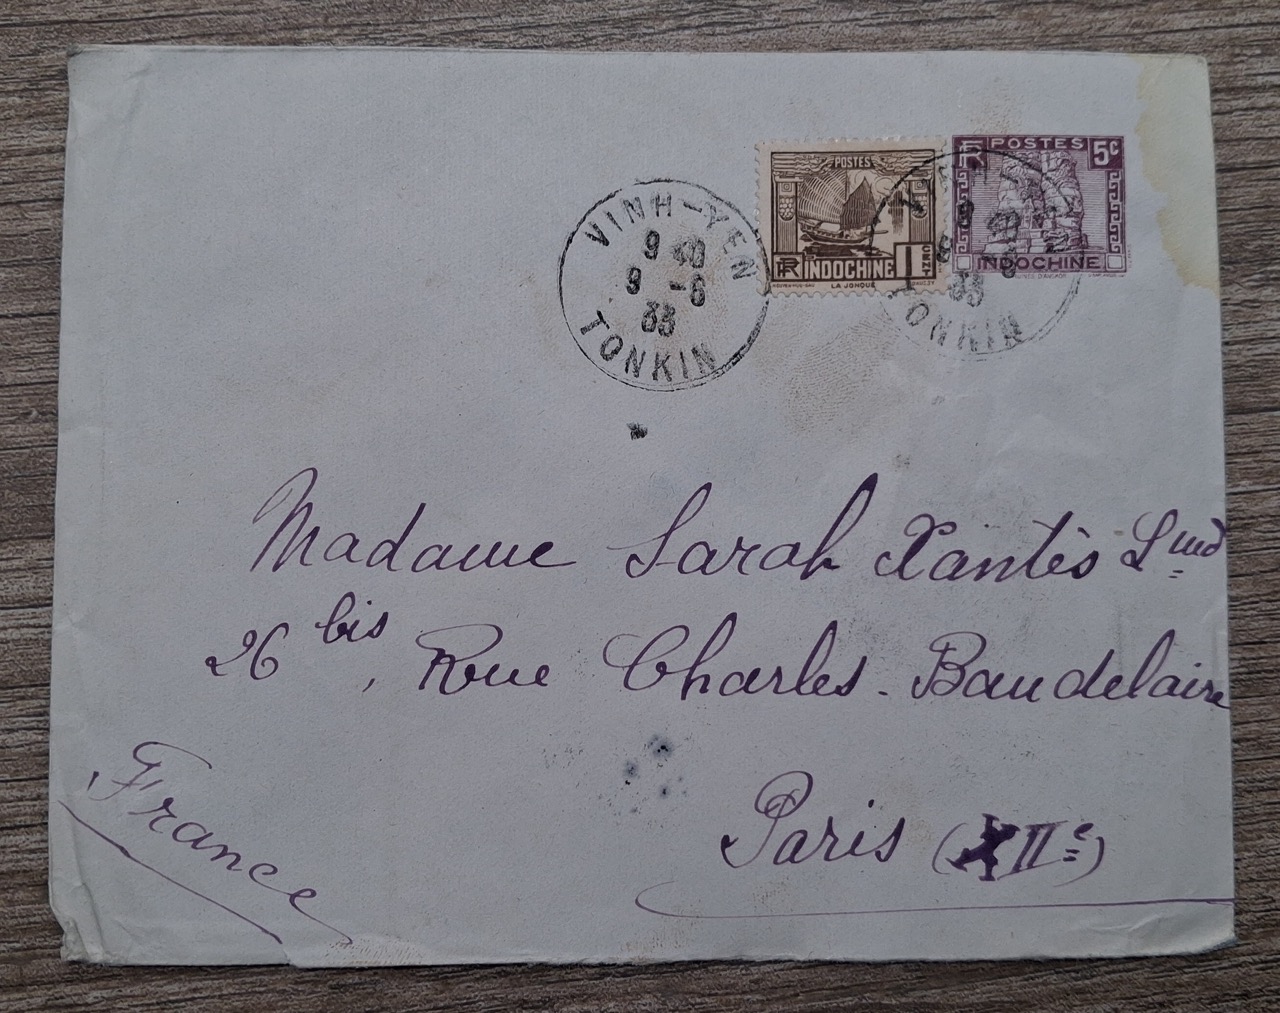 POSTES
INDOCHINE
1 CENT
LA JONQUE
RF POSTES 5c
INDOCHINE
VINH-YEN
9 40
9 -6
33
TONKIN
TONKIN
Madame Sarah Xantès
26 bis, Rue Charles-Baudelaire
Paris (XIIe)
France